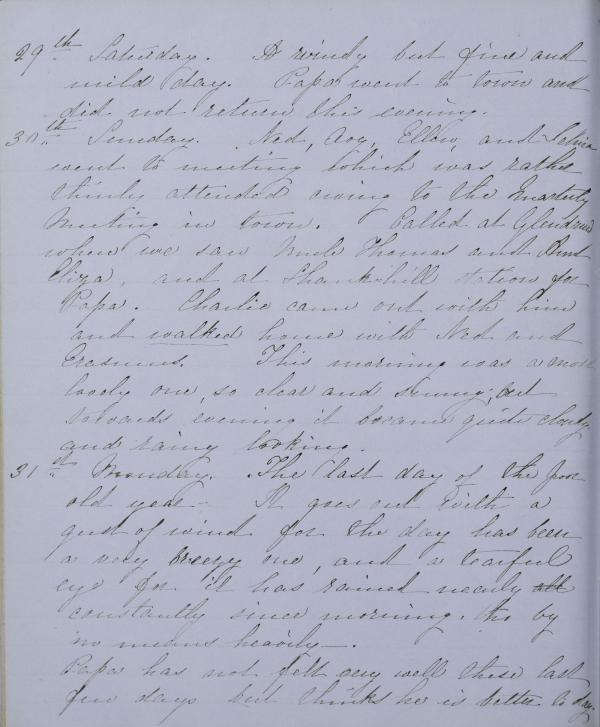 29th Saturday. A windy but fine and
mild day. Papa went to town and
did not return this evening.
30th Sunday. Ned, Avy, Ellen, and Selina
went to meeting which was rather
thinly attended owing to the Quarterly
Meeting in town. Called at Glendruid
where we saw Uncle Thomas and Aunt
Eliza, and at Shankhill station for
Papa. Charlie came out with him
and walked home with Ned and
Erasmus. This morning was a most
lovely one, so clear and sunny, but
towards evening it became quite cloudy
and rainy looking.
31st Monday. The last day of the poor
old year - It goes out with a
gust of wind for the day has been
a very breezy one, and a tearful
eye for it has rained nearly all
constantly since morning. tho by
no means heavily -.
Papa has not felt very well these last
few days but thinks he is better to day.